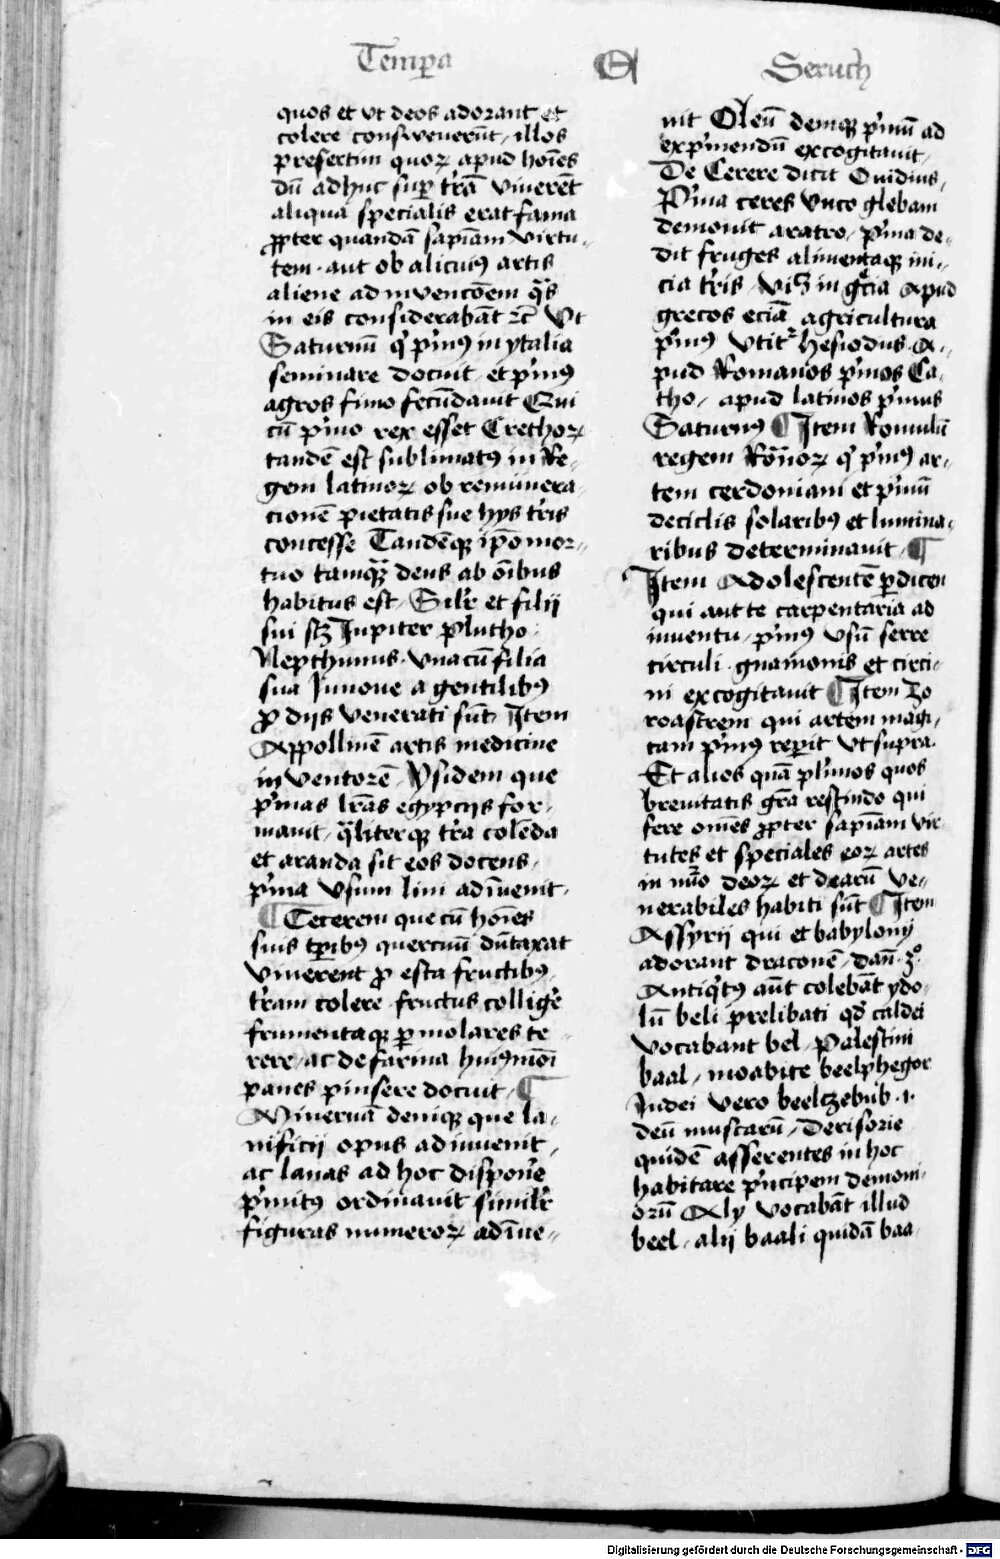 Tempa
Seruch
quos et vt deos adorant et
colere consweuerūt, illos
presertim quoꝝ apud hoīes
dū adhuc suꝑ trā viuerēt
aliqua specialis erat fama
ꝓpter quandā sapīam virtu-
tem. aut ob alicuiꝰ artis
aliene ad invencōem q̄s
in eis considerabāt ꝛc̄ Vt
Saturnū qͥ pͥmꝰ in ytalia
seminare docuit et pͥmꝰ
agros fimo fecūdauit Qui
cū pͥmo rex esset Crethoꝝ
tandē est sublimatꝰ in Re-
gem latinoꝝ ob remunera-
cionē pietatis sue hys tris
concesse Tandēqꝫ ip̄o mor-
tuo tamqᷓ deus ab oībus
habitus est, Silr et filij
sui sꝫ Jupiter plutho
Nepthunus. vnacū filia
sua Junone a gentilibꝰ
ꝓ dijs venerati sūt Item
Appollinē artis medicine
inventorē, ysidem que
pͥmas lrās egypcijs for-
mauit, qͣliterqꝫ tra colēda
et aranda sit eos docens,
pͥma vsum lini adīuenit.
¶ Cererem que cū hoīes
suis tꝑibꝰ quercuū dūtaxat
viuerent ꝓ esca fructibꝰ,
trām colere fructus colligere
frumentaqꝫ ꝑ molares te-
rere, ac de farina huiꝰmōi
panes pinsere docuit. ¶
Mineruā deniqꝫ que la-
nificij opus adinuenit,
ac lanas ad hoc disponere
pͥmitꝰ ordinauit similr
figuras numeroꝝ adīue-
nit Oleū demqꝫ pͥmū ad
expͥmendū excogitauit,
De Cerere dicit Ouidius,
Pͥma ceres vnco glebam
demouit aratro, pͥma de-
dit fruges alimentaqꝫ mi-
cia tris, viꝫ in grͨia Apud
grecos eciā agricultura
pͥmꝰ vtitͬ hesiodus. A-
pud Romanos pͥmos Ca-
tho, apud latinos pͥmus
Saturnꝰ ¶ Item Romulū
regem Rōnoꝝ qͥ pͥmꝰ ar-
tem cerdoniam et pͥmū
deciclis solaribꝰ et lumina-
ribus determinauit. ¶
Item Adolescentē ꝑdicen
qui aut te carpentaria ad
inuentu, pͥmꝰ vsū serre
circuli gnamonis et circi-
ni excogitauit ¶ Item Zo
roastrem qui artem magi-
cam pͥmꝰ reꝑit vt supra.
Et alios quā plͥmos quos
breuitatis grā rescindo qui
fere omēs ꝓpter sapīam vir
tutes et speciales eoꝝ artes
in nuͦo deoꝝ et dearū ve-
nerabiles habiti sūt ¶ Item
Assyrij qui et babylonij
adorant draconē, dañ. 3ͦ.
Antiqͥtꝰ aūt colebāt ydo-
lū beli prelibati qd̄ caldei
vocabant bel, palestini
baal, moabite beelphegor
Iudei vero beelczebub .i.
deū muscarū, Derisorie
quidē asserentes in hoc
habitare pͥncipem demoni-
orū Aly vocabāt illud
beel, alij baali quidā baa-
Digitalisierung gefördert durch die Deutsche Forschungsgemeinschaft - DFG